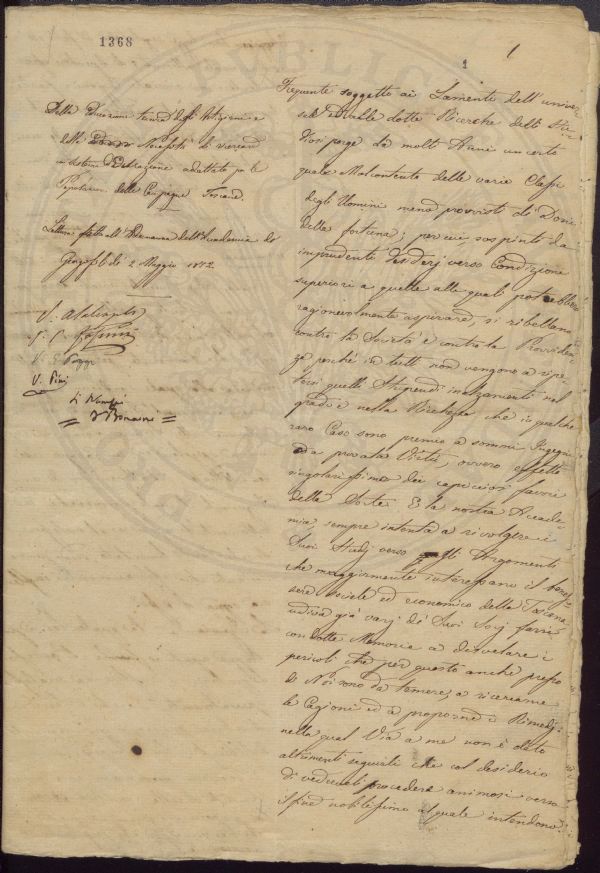 1368
1
1
Della Direzione
delli
un sistema d'Educazione adattato per le
Popolazioni delle Campagne Toscane.
Lettura fatta all' Adunanza dell' Accademia de
Georgofili de' 2 Maggio 1852.
V.
V.
V. Pini
Frequente soggetto ai Lamenti dell' univer
sale e delle dotte Ricerche dell'
porge da molti Anni un certo
quale Malcontento delle varie Classi
degli Uomini meno provvisti di Doni
della fortuna; per cui sospinti da
imprudenti desiderj verso Condizione
superiori a quelle alle quali potrebbero
ragionevolmente aspirare, si ribellano
contro la Società e contro la Provviden
za perché in tutti non vengono a ripe
tersi quelli Stupendi inalzamenti nel
grado e nella Ricchezza che in qualche
raro Caso sono premio a sommi Ingegni
o a privata Virtù, ovvero effetto
singolarissimo dei capricciosi favori
della Sorte. E la nostra Accade
mia, sempre intenta a rivolgere i
Suoi Studj verso gli Argomenti
che maggiormente interessano il benes
sere sociale ed economico della Toscana
udiva già varj de' Suoi Socj farsi
con dotte Memorie a disvelare i
pericoli che per questo anche presso
di Noi sono da temere, a ricercarne
le Cagioni ed a proporne i Rimedj.
nella qual Via a me non è dato
altrimenti seguirli che col desiderio
di vederli procedere animosi verso
il fine nobilissimo al quale intendono.